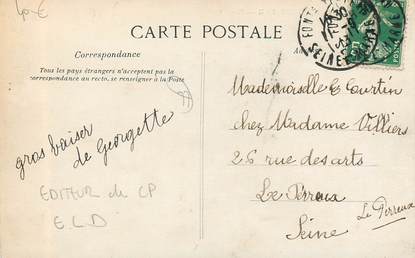 CARTE POSTALE
Correspondance
Tous les pays étrangers n'acceptent pas la
correspondance au recto, se renseigner à la Poste
gros baiser
de Georgette
EDITEUR de CP
E L D
Mademoiselle E Courtin
chez Madame Villiers
26 rue des arts
Le Perreux
Seine
Le Perreux